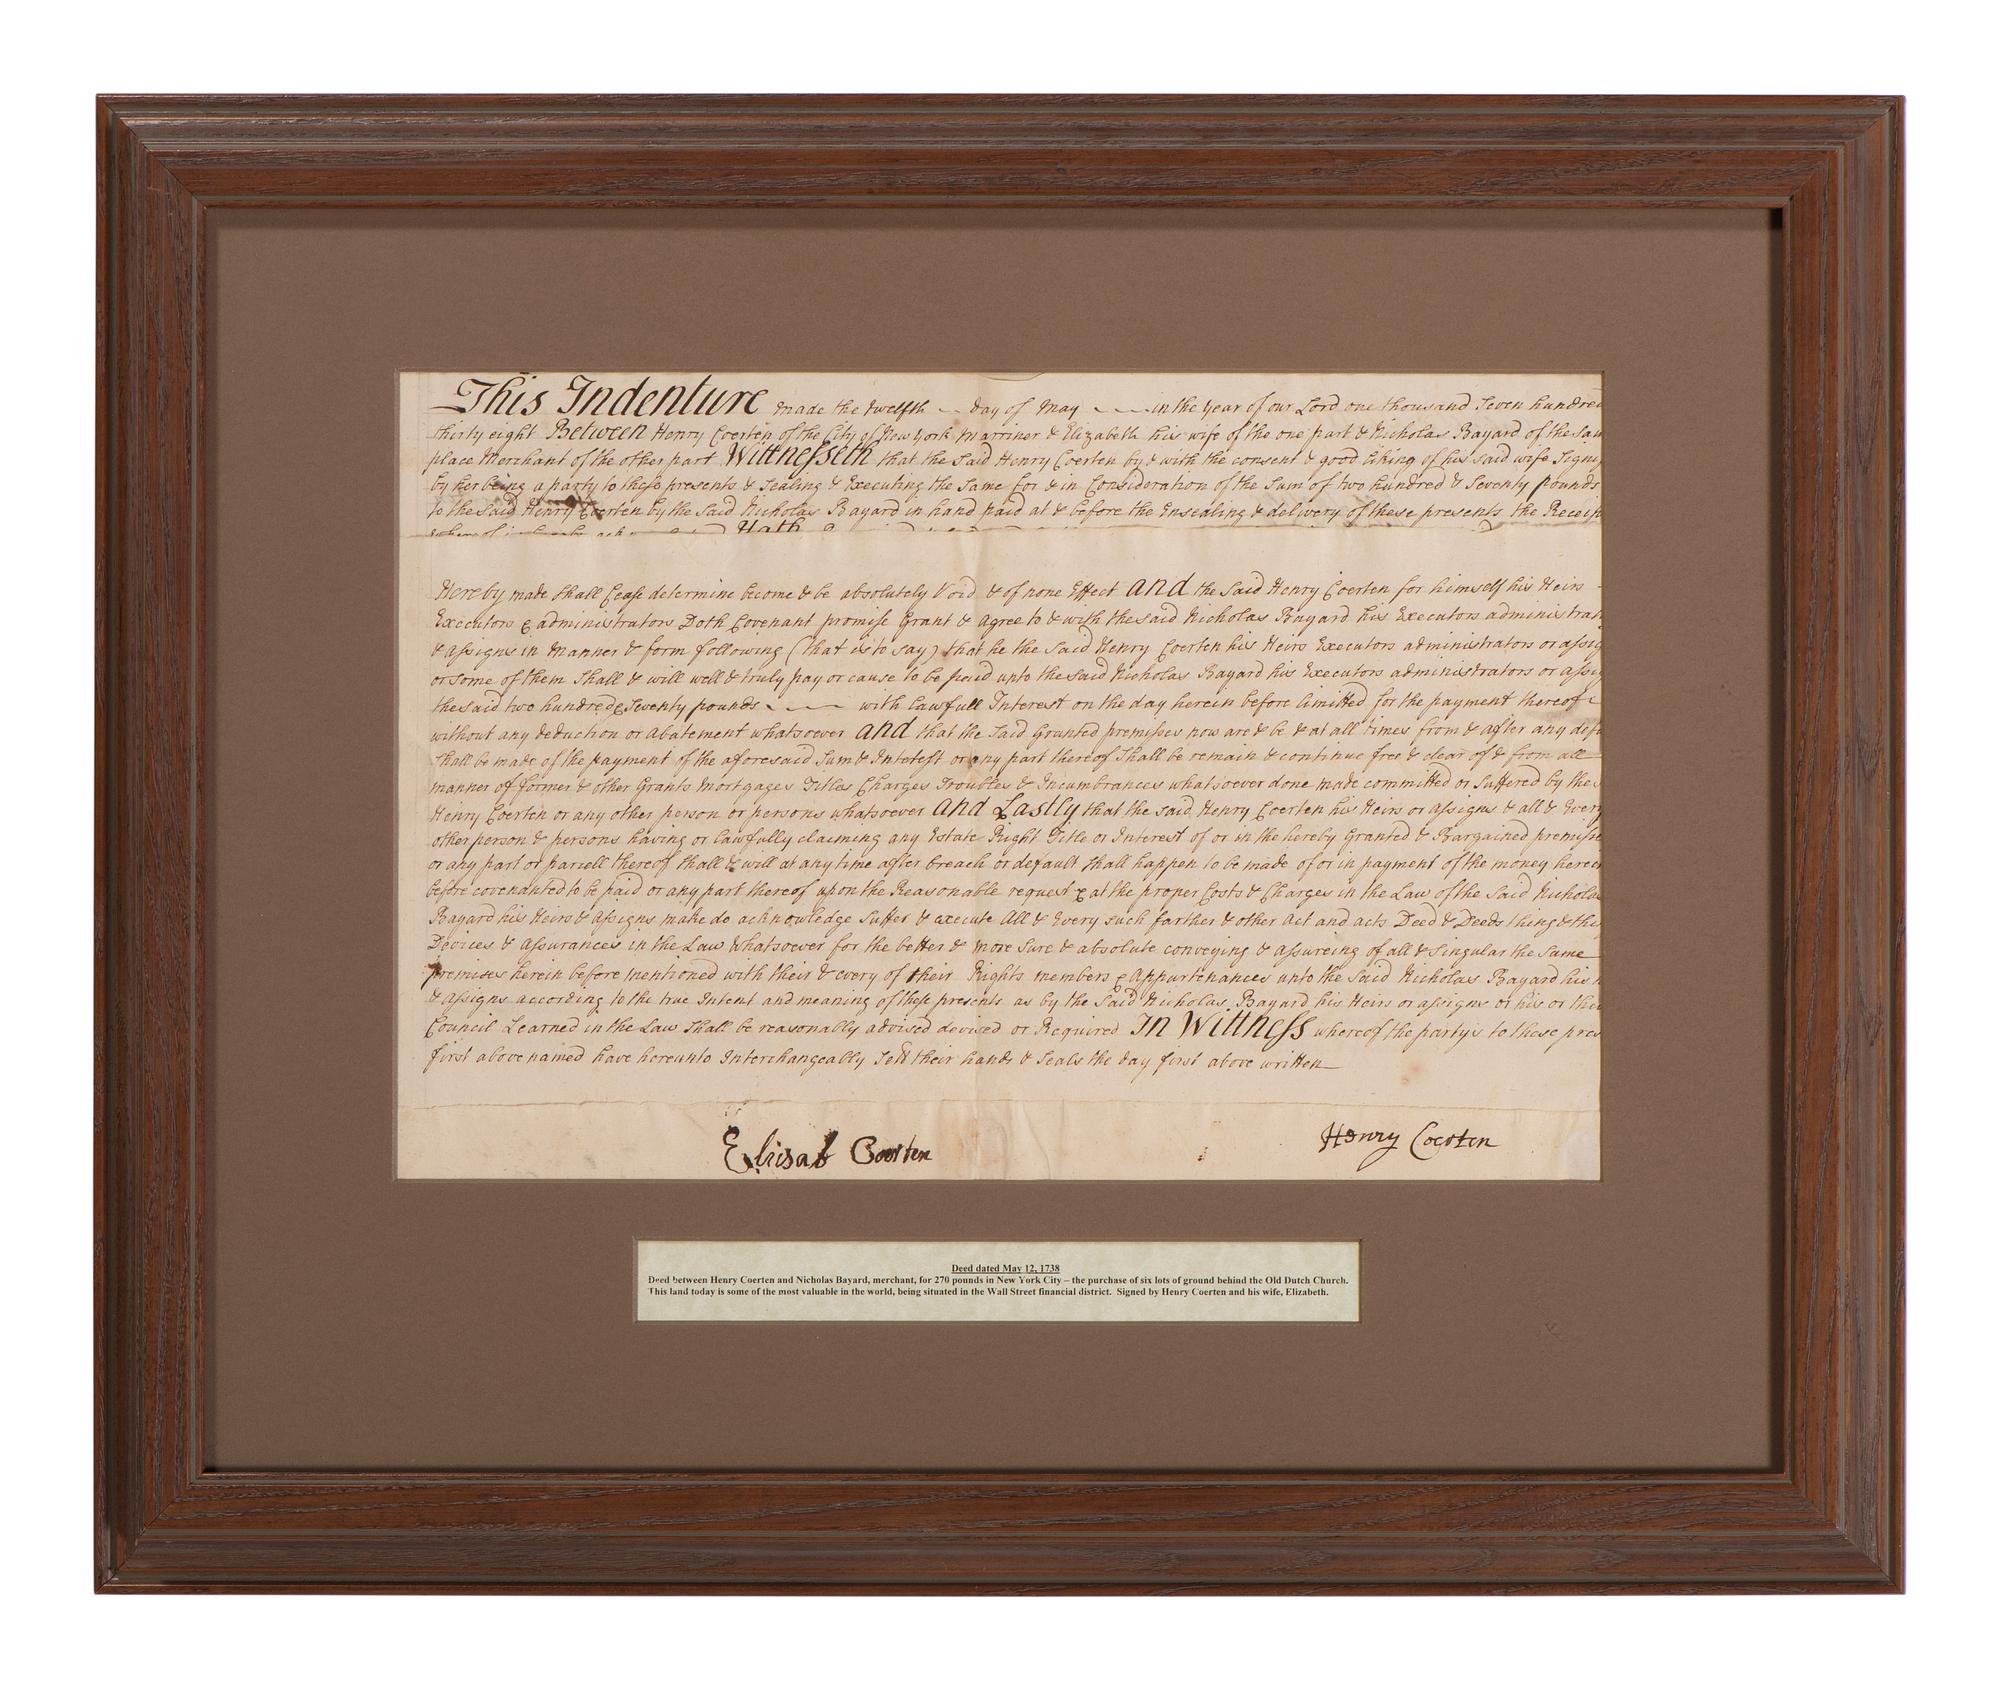 This Indenture made the twelfth day of May in the Year of our Lord one thousand Seven hundred
thirty eight Between Henry Coerten of the City of New York Marriner & Elizabeth his wife of the one part & Nicholas Bayard of the Sam
place Merchant of the other part Wittnesseth that the Said Henry Coerten by & with the consent & good liking of his said wife Signi
by her being a party to these presents & Sealing & Executing the Same for & in Consideration of the Sum of two hundred & Seventy pounds
to the Said Henry Coerten by the Said Nicholas Bayard in hand paid at & before the Ensealing & delivery of these presents the Receip
Hath
Hereby made Shall Cease determine become & be absolutely Void & of none Effect and the Said Henry Coerten for himself his Heirs
Executors & administrators Doth Covenant promise Grant & Agree to & with the said Nicholas Bayard his Executors administrat
& assigns in Manner & form following (that is to say) that he the Said Henry Coerten his Heirs Executors administrators or assig
or Some of them Shall & will well & truly pay or cause to be paid unto the said Nicholas Bayard his Executors administrators or assig
the said two hundred & Seventy pounds with Lawfull Interest on the day herein before limitted for the payment thereof
without any deduction or abatement whatsoever and that the Said Granted premises now are & be & at all times from & after any def
Shall be made of the payment of the aforesaid Sum & Interest or any part thereof Shall be remain & continue free & clear of & from all
manner of former & other Grants Mortgages Titles Charges Troubles & Incumbrances whatsoever done made committed or Suffered by the
Henry Coerten or any other person or persons whatsoever and Lastly that the said Henry Coerten his Heirs or Assigns & all & Every
other person & persons having or lawfully claiming any Estate Right Title or Interest of or in the hereby Granted & Bargained premise
or any part or parcell thereof Shall & will at any time after breach or default Shall happen to be made of or in payment of the money herein
before covenanted to be paid or any part thereof upon the Reasonable request & at the proper Costs & Charges in the Law of the Said Nichola
Bayard his Heirs & Assigns make do acknowledge Suffer & execute All & Every such farther & other Act and acts Deed & Deeds thing & thi
Devices & Assurances in the Law Whatsoever for the better & more Sure & absolute conveying & assureing of all & Singular the Same
premises herein before mentioned with their & every of their Rights members & Appurtenances unto the Said Nicholas Bayard his
& Assigns according to the true Intent and meaning of these presents as by the Said Nicholas Bayard his Heirs or assigns or his or thei
Council Learned in the Law Shall be reasonably advised devised or Required In Wittness whereof the partys to these pres
first above named have hereunto Interchangeably Sett their hands & Seals the day first above written
Elisab Coerten
Henry Coerten
Deed dated May 12, 1738
Deed between Henry Coerten and Nicholas Bayard, merchant, for 270 pounds in New York City – the purchase of six lots of ground behind the Old Dutch Church.
This land today is some of the most valuable in the world, being situated in the Wall Street financial district. Signed by Henry Coerten and his wife, Elizabeth.